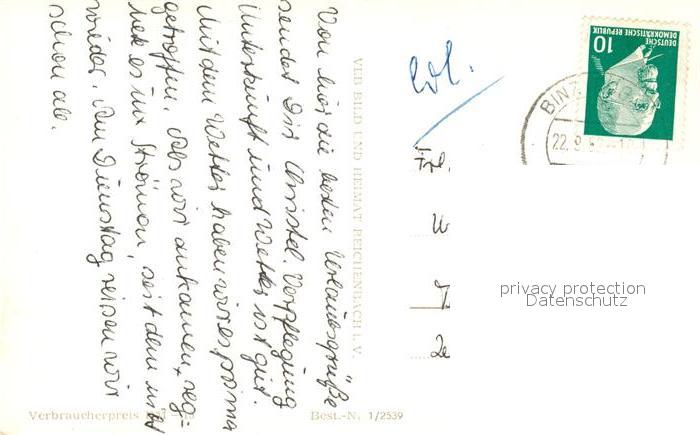 Von hier die besten Urlaubsgrüße
sendet Dir Christel. Verpflegung
Unterkunft und Wetter ist gut.
Mit dem Wetter haben wir es prima
getroffen. Als wir ankamen, reg-
nete es in Strömen, seit dem nicht
wieder. Am Dienstag reisen wir
schon ab.
VEB BILD UND HEIMAT REICHENBACH i. V.
Verbraucherpreis
Best.-N. 1/2539
Frl.
DEUTSCHE
DEMOKRATISCHE REPUBLIK
10
BINZ
22.9.
privacy protection
Datenschutz